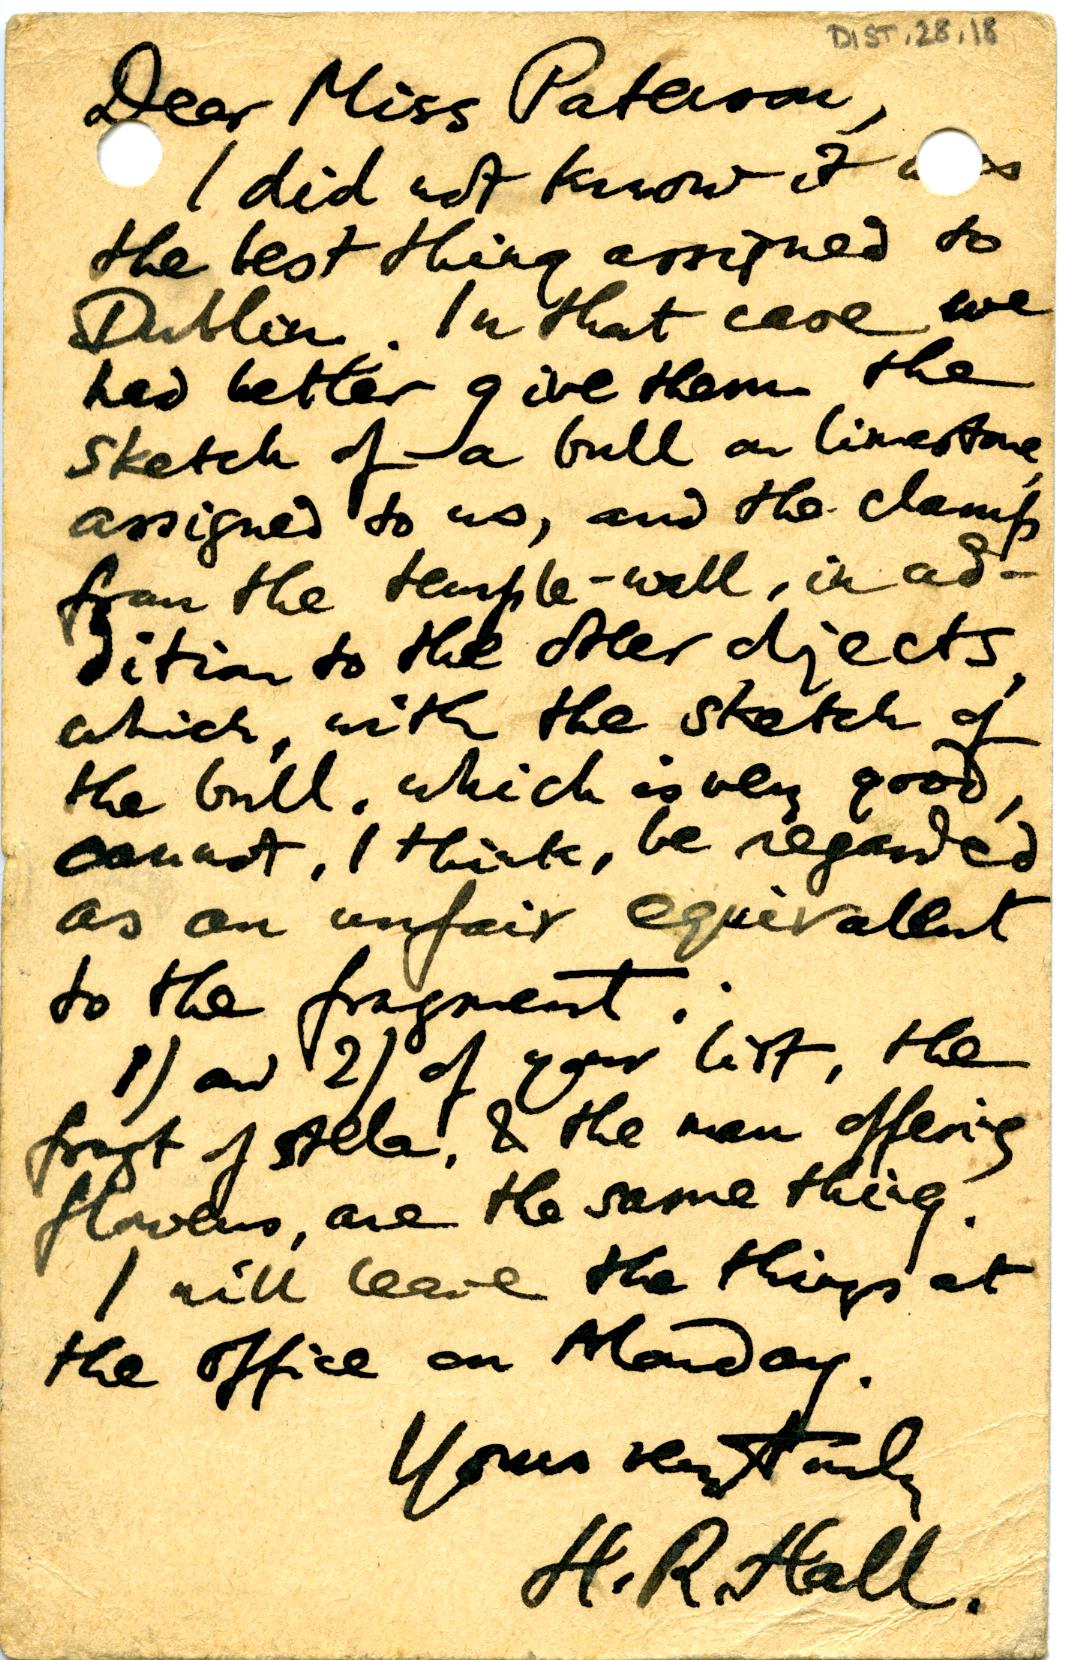 DIST.28.18
Dear Miss Paterson,
I did not know it was
the best thing assigned to
Dublin. In that case we
had better give them the
sketch of a bull on limestone,
assigned to us, and the clamp
from the temple-wall, in ad-
dition to the other objects,
which, with the sketch of
the bull, which is very good,
cannot, I think, be regarded
as an unfair equivalent
to the fragment.
1) and 2) of your list, the
fragt of stela, & the man offering
flowers, are the same thing.
I will leave the things at
the office on Monday.
Yours very truly
H. R. Hall.